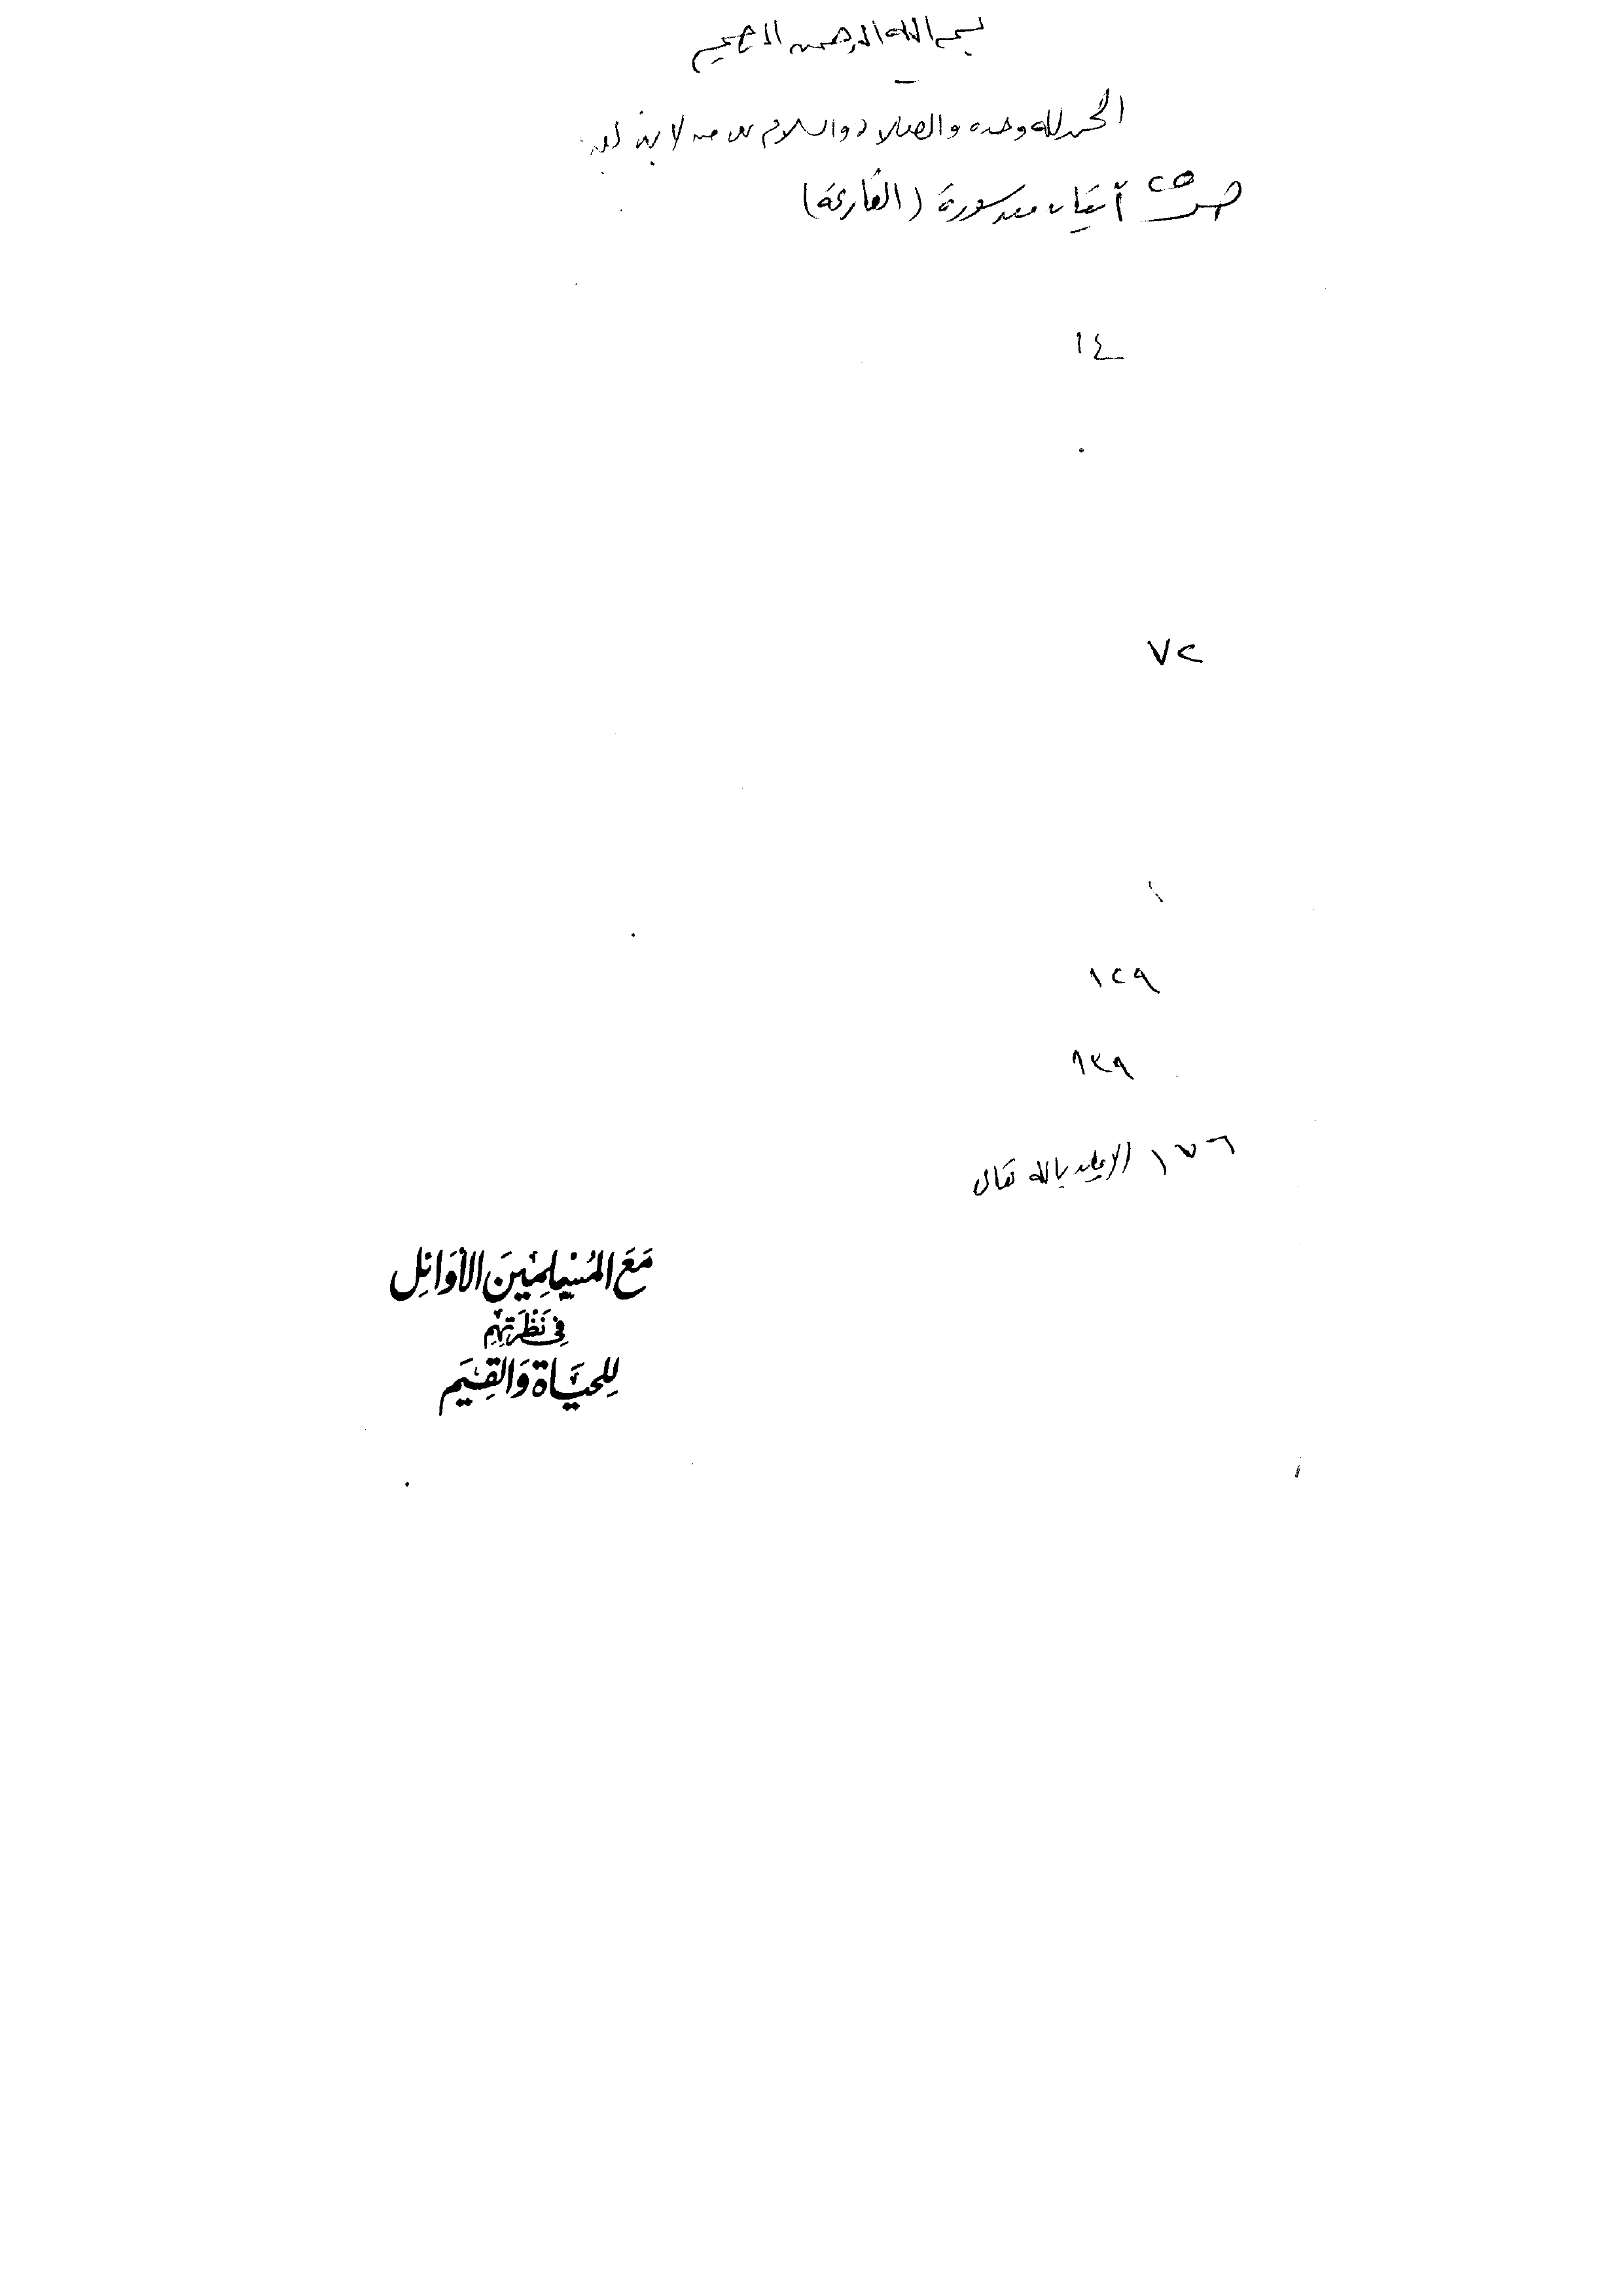 بسم الله الرحمن الرحيم
الحمد لله وحده والصلاة والسلام على من لا نبي بعده
ص ٢٥ آيتان من سورة (القارعة)
١٤
٧٢
١٢٩
١٣٩
١٧٦ الإيمان بالله تعالى
مَعَ المُسْلِمِينَ الأَوَائِل
فِي نَظْرَتِهِم
لِلحَيَاة وَالقِيَم